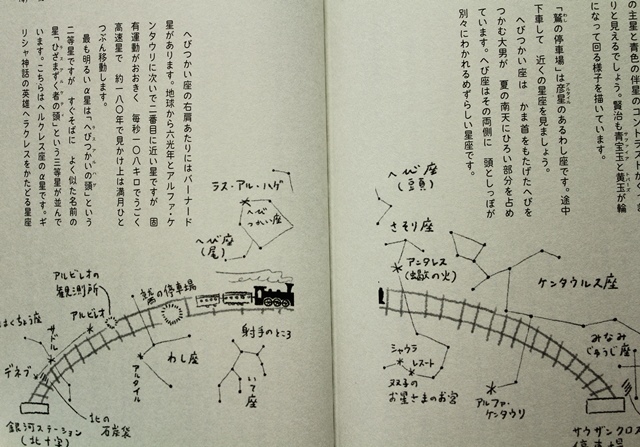 の主星と青色の伴星のコントラストが
りと見えるでしょう。賢治も青宝玉と黄玉が輪
になって回る様子を描いています。
「鷲の停車場」は彦星のあるわし座です。途中
下車して 近くの星座を見ましょう。
へびつかい座は かま首をもたげたへびを
つかむ大男が 夏の南天にひろい部分を占め
ています。へび座はその両側に 頭としっぽが
別々にわかれるめずらしい星座です。
へび座
(頭)
さそり座
アンタレス
(蝎の火)
ケンタウルス座
みなみ
じゅうじ座
シャウラ
レスート
双子の
お星さまのお宮
アルファ・
ケンタウリ
サウザンクロス
へびつかい座の右肩あたりにはバーナード
星があります。地球から六光年とアルファ・ケ
ンタウリに次いで二番目に近い星ですが 固
有運動がおおきく 毎秒一〇八キロでうごく
高速星で 約一八〇年で見かけ上は満月ひと
つぶん移動します。
最も明るいα星は「へびつかいの頭」という
二等星ですが すぐそばに よく似た名前の
星「ひざまずく者の頭」という三等星が並んで
います。こちらはヘルクレス座のα星です。ギ
リシャ神話の英雄ヘラクレスをかたどる星座
ラス・アル・ハゲ
へび
つかい座
へび座
(尾)
アルビレオの
観測所
鷲の停車場
アルビレオ
はくちょう座
サドル
デネブ
わし座
アルタイル
射手のところ
いて座
北の
石炭袋
銀河ステーション
(北十字)